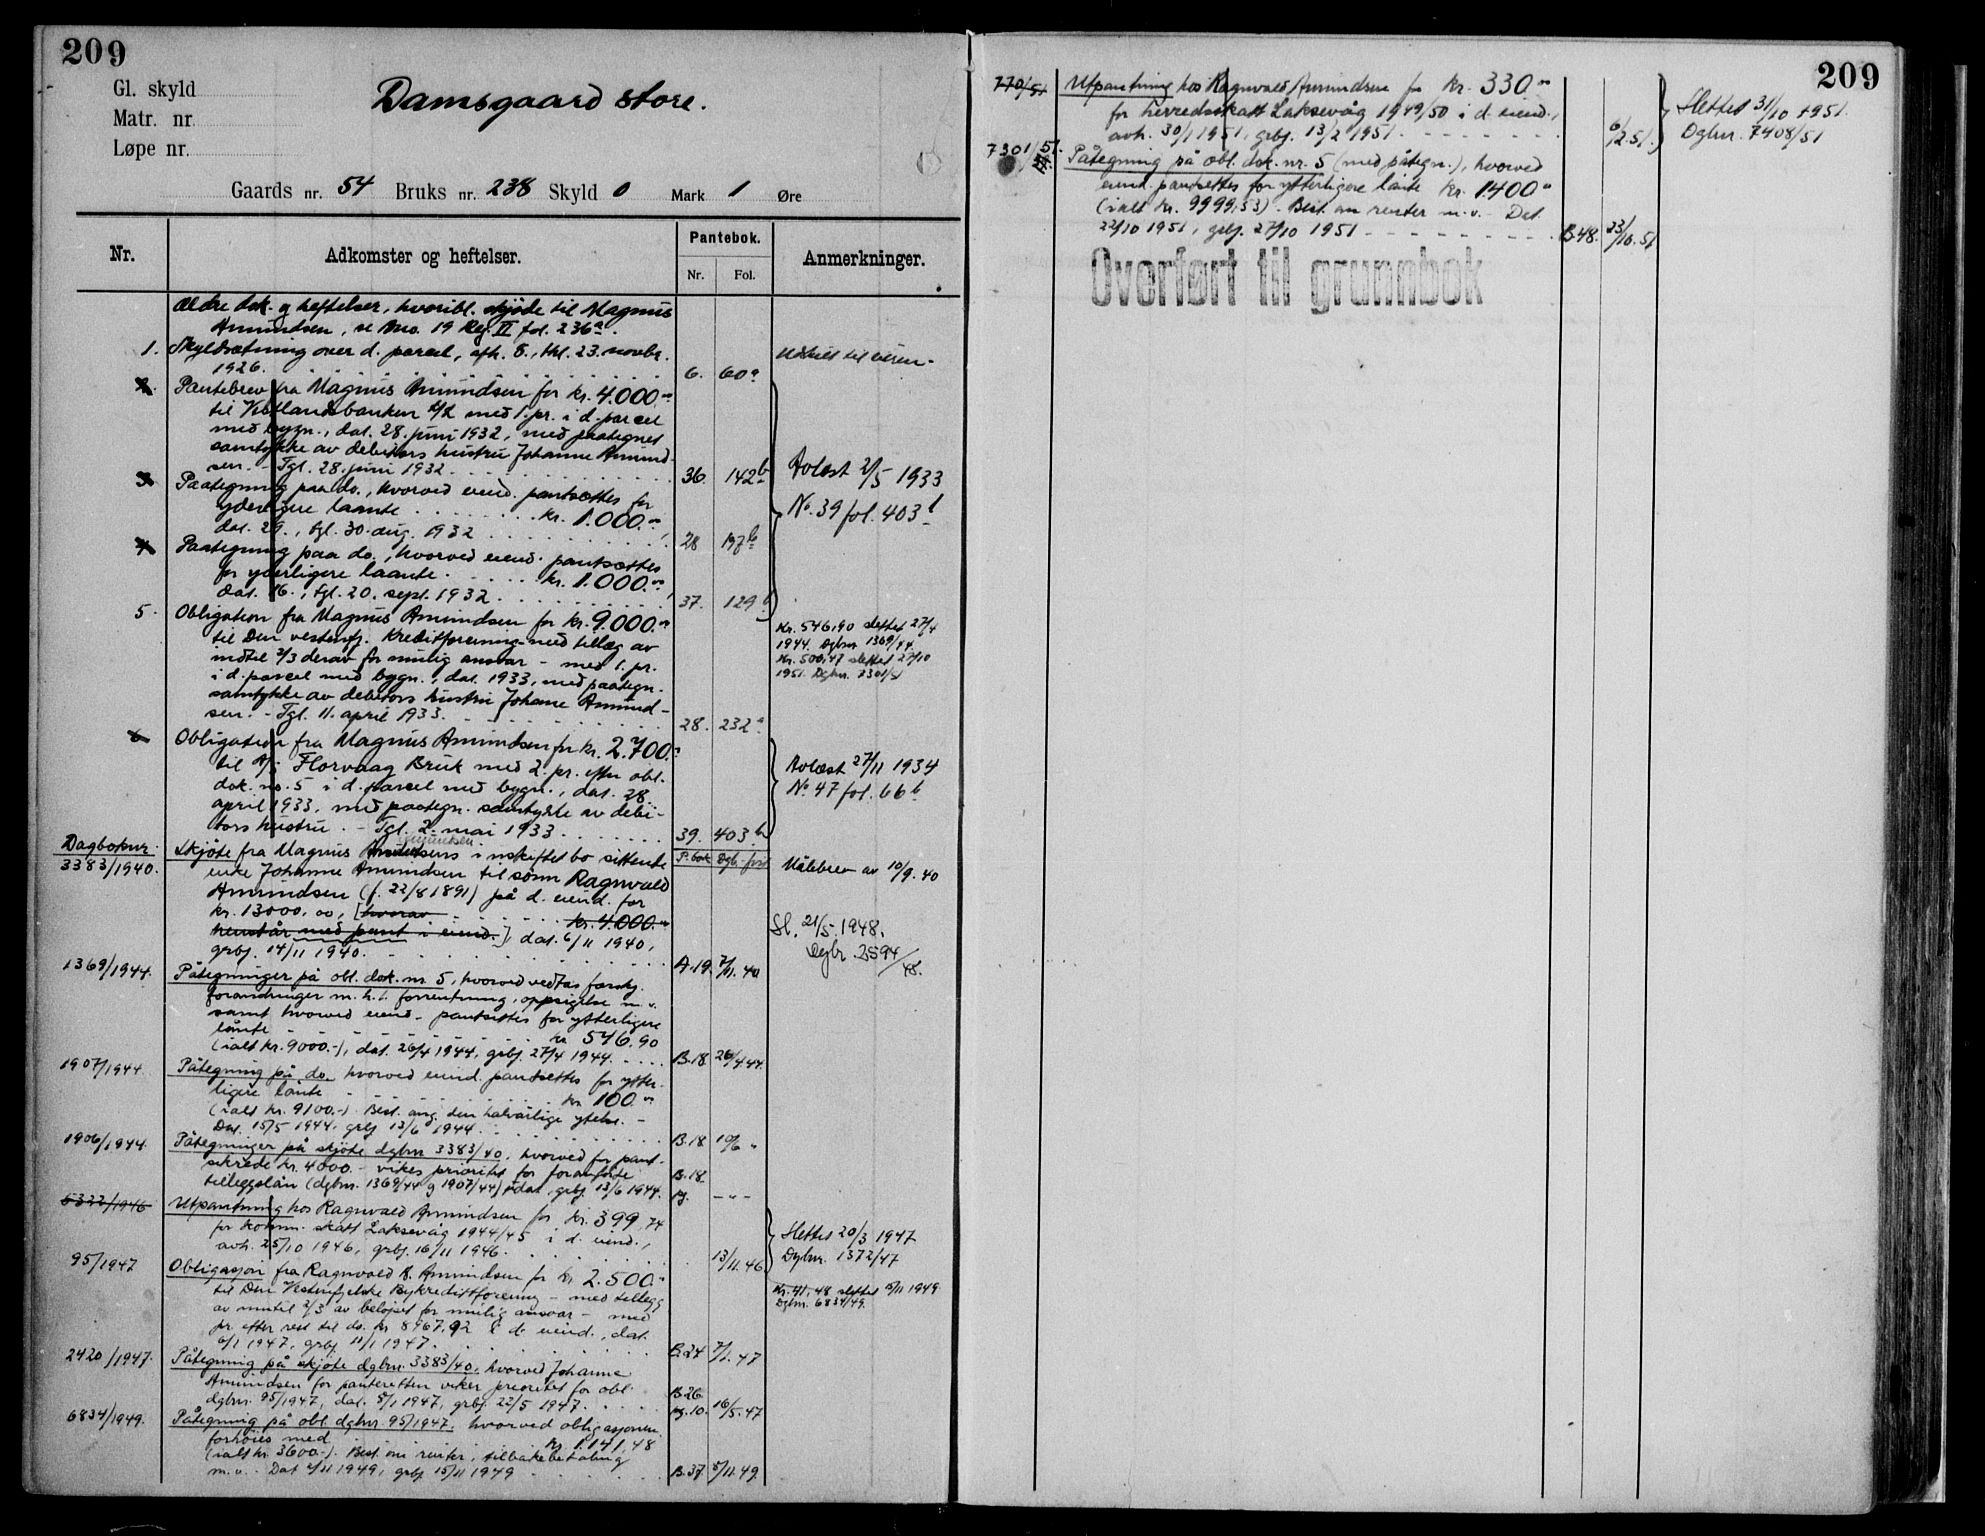 209
Gl. skyld
Matr. nr.
Løpe nr.
Damsgaard store.
Gaards nr. 54 Bruks nr. 238 Skyld 0 Mark 1 Øre
Nr.
Adkomster og heftelser.
Pantebok.
Nr. Fol.
Anmerkninger.
Ældre dok. og heftelser, hvoribl. skjöde til Magnus
Amundsen, se Mno. 19 Reg. II fol. 236a.
1. Skyldsætning over d. parcel, afh. 8., thl. 23. novbr.
1926. 6. 60a
2. Pantebrev fra Magnus Amundsen for kr. 4.000.00
til Vestlandsbanken A/L med 1. pr. i d. parcel
med bygn., dat. 28. juni 1932, med paategnet
samtykke av debitors hustru Johanne Amund-
sen. - Tgl. 28. juni 1932. 36. 142b
3. Paategning paa do., hvorved eiend. pantsættes for
yderligere laante kr. 1.000.00,
dat. 29., tgl. 30. aug. 1932 28 197b
4. Paategning paa do., hvorved eiend. pantsættes
for yderligere laante kr. 1.000.00,
dat. 16., tgl. 20. sept. 1932 37. 129b
Avlæst 2/5 1933
No. 39 fol. 403b
5. Obligation fra Magnus Amundsen for kr. 9.000.00
til Den vestenfj. Kreditforening med tillæg av
indtil 2/3 derav for mulig ansvar - med 1. pr.
i d. parcel med bygn., dat. 1933, med paategn.
samtykke av debitors hustru Johanne Amund-
sen. - Tgl. 11. april 1933. 28. 232a
Kr. 546,90 slettet 27/4
1944. Dgbnr. 1369/44.
Kr. 500,47 slettet 27/10
1951. Dgbnr. 7301/51
6 Obligation fra Magnus Amundsen for kr. 2.700.00
til A/S Florvaag Bruk med 2. pr. efter obl.
dok. no. 5 i d. parcel med bygn., dat. 28.
april 1933, med paategn. samtykke av debi-
tors hustru. - Tgl. 2. mai 1933 39. 403b
Avlæst 27/11 1934
No. 47 fol. 66b
Dagboknr. P. bok Dgb. ført
3383/1940. Skjöte fra Magnus Amundsens i uskiftet bo sittende
enke Johanne Amundsen til sønn Ragnvald
Amundsen (f. 22/8 1891) på d. eiend. for
kr. 13000,00, [hvorav kr. 4.000.00
henstår med pant i eiend.], dat. 6/11 1940,
grbf. 14/11 1940. A.19. 7/11. 40
Målebrev av 10/9. 40
Sl. 21/5. 1948.
Dgbr. 2594/48.
1369/1944. Påtegninger på obl. dok. nr. 5, hvorved vedtas forskj.
forandringer m. h. t. forrentning, oppsigelse m. v.
samt hvorved eiend. pantsettes for ytterligere
lånte kr. 546.90
(ialt kr. 9000.-), dat. 26/4 1944, grbf. 27/4 1944. B.18 26/4.44
1907/1944. Påtegning på do. hvorved eiend. pantsettes for ytter-
ligere lånte kr. 100.00
(ialt kr. 9100.-). Best. ang. den halvårlige ytelse. -
Dat. 15/5 1944, grbf. 13/6 1944. B.18 10/6 "
1906/1944. Påtegninger på skjöte dgbnr. 3383/40, hvorved for pant-
sikrede kr. 4000.- vikes prioritet for foranförte
tilleggslån (dgbnr. 1369/44 og 1907/44), dat., grbf. 13/6 1944. B.18. - " -
5322/1946 Utpantning hos Ragnvald Amundsen for kr. 399,74
for komm. skatt Laksevåg 1944/45 i d. eiend.,
avh. 25/10 1946, grbf. 16/11 1946. 13/11.46
Slettes 20/3 1947
Dgbnr. 1372/47
95/1947 Obligasjon fra Ragnvald B. Amundsen for kr. 2.500.00
til Den Vestenfjelske Bykredittforening - med tillegg
av inntil 2/3 av beløpet for mulig ansvar - med
pr. efter rest til do. kr. 8967.92 i d. eiend., dat.
6/1 1947, grbf. 11/1 1947. B.24 7/1.47
Kr. 41,48 slettet 15/11 1949.
Dgbnr. 6834/49.
2420/1947. Påtegning på skjöte dgbnr. 3383/40, hvorved Johanne
Amundsen for panteretten viker prioritet for obl.
dgbnr. 95/1947, dat. 8/1 1947, grbf. 22/5 1947. B.26 pg. 10. 16/5.47
6834/1949. Påtegning på obl. dgbnr. 95/1947, hvorved obligasjonen
forhöies med kr. 1.141,48
(ialt kr. 3600.-). Best. om renter, tilbakebetaling
m. v. Dat. 2/11 1949, grbf. 15/11 1949 B.37. 5/11.49.
209
770/51 Utpantning hos Ragnvald Amundsen for kr. 330.00
for herredsskatt Laksevåg 1949/50 i d. eiend.,
avh. 30/1 1951, grbf. 13/2 1951. 6/2.51.
Slettes 31/10 1951.
Dgbnr. 7408/51
7301/51. Påtegning på obl. dok. nr. 5 (med påtegn.), hvorved
eiend. pantsettes for ytterligere lånte kr. 1400.00
(ialt kr. 9999,53). Best. om renter m. v. - Dat.
22/10 1951, grbf. 27/10 1951 B.48. 23/10.51
Overført til grunnbok